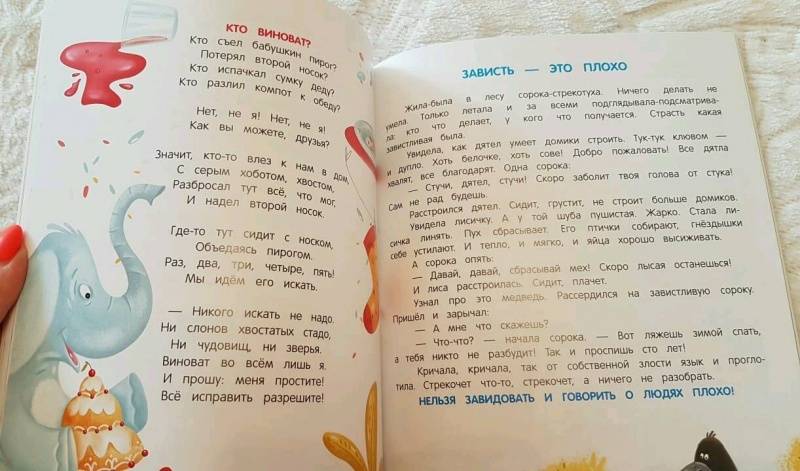 КТО ВИНОВАТ?
Кто съел бабушкин пирог?
Потерял второй носок?
Кто испачкал сумку деду?
Кто разлил компот к обеду?
Нет, не я! Нет, не я!
Как вы можете, друзья?
Значит, кто-то влез к нам в дом,
С серым хоботом, хвостом,
Разбросал тут всё, что мог,
И надел второй носок.
Где-то тут сидит с носком,
Объедаясь пирогом.
Раз, два, три, четыре, пять!
Мы идём его искать.
— Никого искать не надо.
Ни слонов хвостатых стадо,
Ни чудовищ, ни зверья.
Виноват во всём лишь я.
И прошу: меня простите!
Всё исправить разрешите!
ЗАВИСТЬ — ЭТО ПЛОХО
Жила-была в лесу сорока-стрекотуха. Ничего делать не
умела. Только летала и за всеми подглядывала-подсматрива-
ла: кто что делает, у кого что получается. Страсть какая
завистливая была.
Увидела, как дятел умеет домики строить. Тук-тук клювом —
и дупло. Хоть белочке, хоть сове! Добро пожаловать! Все дятла
хвалят, все благодарят. Одна сорока:
— Стучи, дятел, стучи! Скоро заболит твоя голова от стука!
Сам не рад будешь.
Расстроился дятел. Сидит, грустит, не строит больше домиков.
Увидела лисичку. А у той шуба пушистая. Жарко. Стала ли-
сичка линять. Пух сбрасывает. Его птички собирают, гнёздышки
себе устилают. И тепло, и мягко, и яйца хорошо высиживать.
А сорока опять:
— Давай, давай, сбрасывай мех! Скоро лысая останешься!
И лиса расстроилась. Сидит, плачет.
Узнал про это медведь. Рассердился на завистливую сороку.
Пришёл и зарычал:
— А мне что скажешь?
— Что-что? — начала сорока. — Вот ляжешь зимой спать,
а тебя никто не разбудит! Так и проспишь сто лет!
Кричала, кричала, так от собственной злости язык и прогло-
тила. Стрекочет что-то, стрекочет, а ничего не разобрать.
НЕЛЬЗЯ ЗАВИДОВАТЬ И ГОВОРИТЬ О ЛЮДЯХ ПЛОХО!